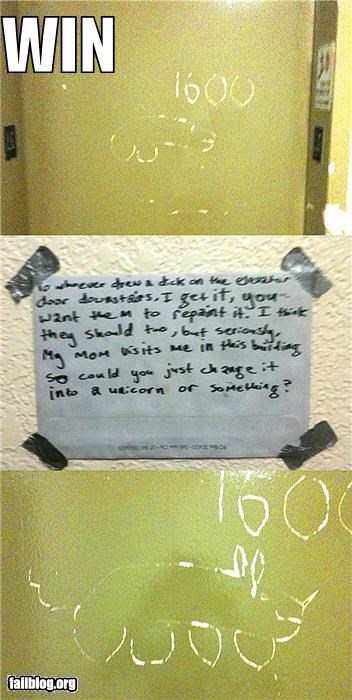 WIN
1600
To whoever drew a dick on the elevator
door downstairs, I get it, you
want them to repaint it. I think
they should too, but seriously,
My Mom visits me in this building
so could you just change it
into a unicorn or something?
1600
failblog.org